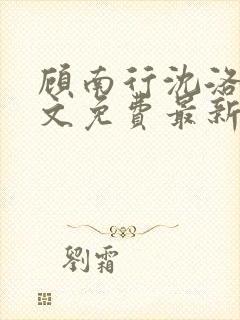 顾南行沈洛
文免费最新
劉霜